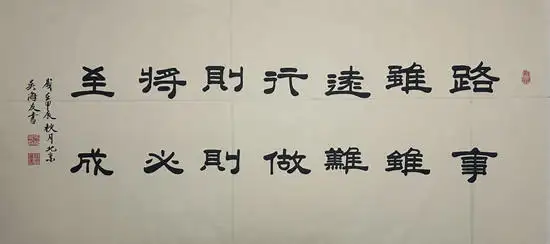 路雖遠行則將至
事雖難做則必成
歲在甲辰秋月北京
吴海友書